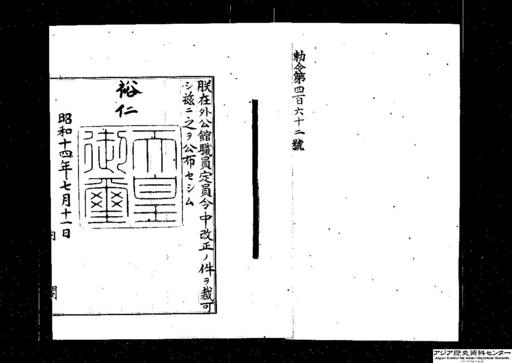 勅令第四百六十二號
朕在外公館職員定員令中改正ノ件ヲ裁可
シ茲ニ之ヲ公布セシム
裕仁
天皇
御璽
昭和十四年七月十一日
内閣
アジア歴史資料センター
Japan Center for Asian Historical Records